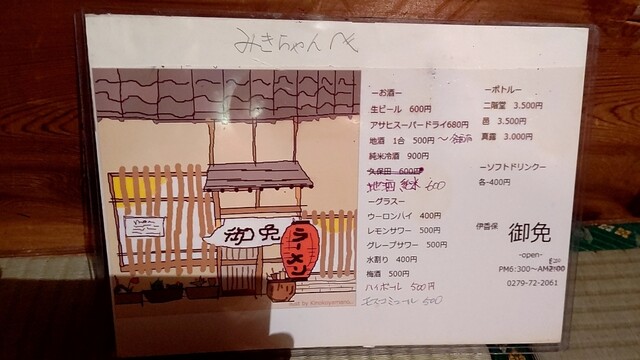 みきちゃんへ
御免
ラーメン
ーお酒ー
生ビール 600円
アサヒスーパードライ680円
地酒 1合 500円 〜
純米冷酒 900円
久保田 600円
地酒 純米 600
ーグラスー
ウーロンハイ 400円
レモンサワー 500円
グレープサワー 500円
水割り 400円
梅酒 500円
ハイボール 500円
モスコミュール 500
ーボトルー
二階堂 3.500円
邑 3.500円
真露 3.000円
ーソフトドリンクー
各-400円
伊香保 御免
-open-
PM6:300〜AM2:00
0279-72-2061